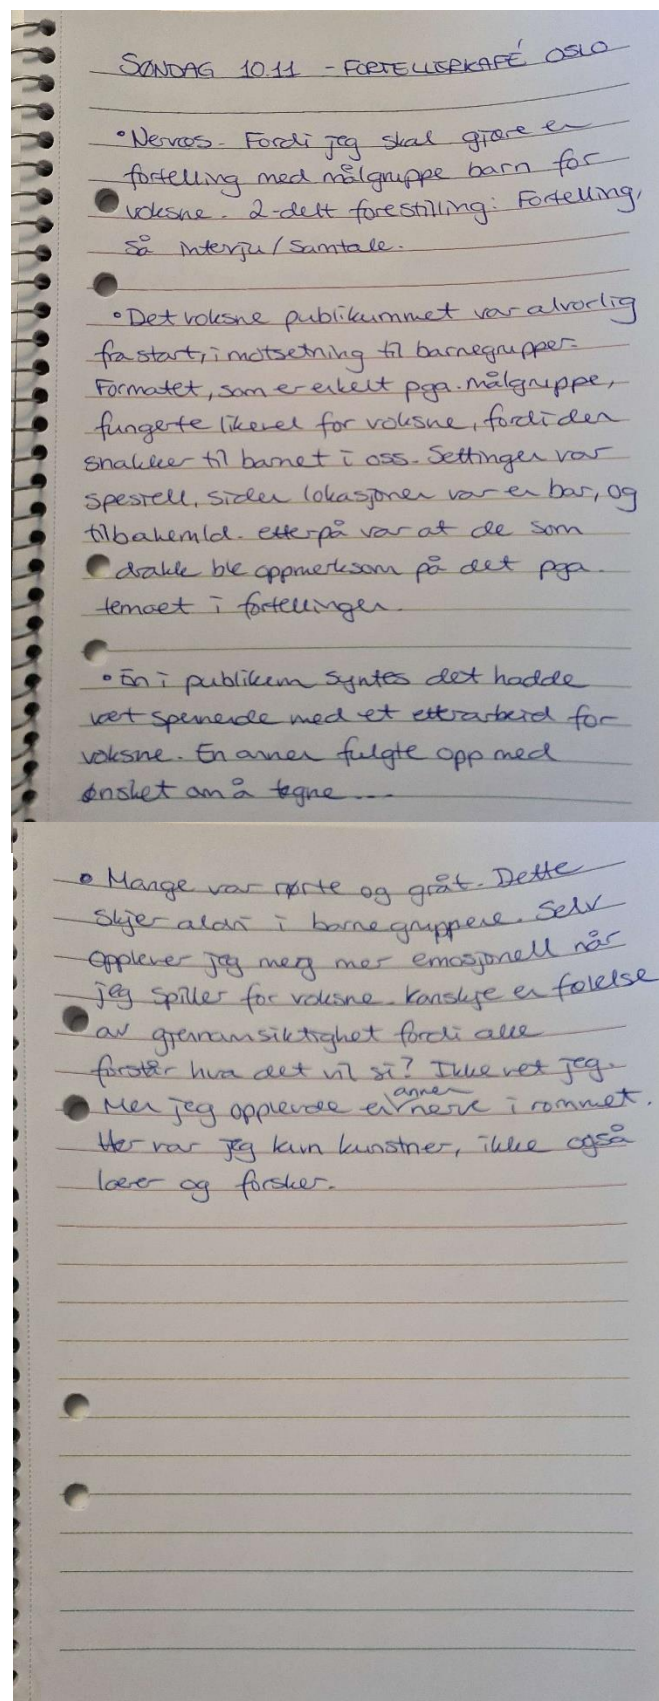 SØNDAG 10.11 - FORTELLERKAFÉ OSLO
• Nervøs. Fordi jeg skal gjøre en
fortelling med målgruppe barn for
voksne. 2-delt forestilling: Fortelling,
så interju/samtale.
• Det voksne publikummet var alvorlig
fra start, i motsetning til barnegrupper.
Formatet, som er enkelt pga. målgruppe,
fungerte likevel for voksne, fordi den
snakker til barnet i oss. Settingen var
spesiell, siden lokasjonen var en bar, og
tilbakemld. etterpå var at de som
drakk ble oppmerksom på det pga.
temaet i fortellingen.
• En i publikum syntes det hadde
vært spennende med et etterarbeid for
voksne. En annen fulgte opp med
ønsket om å tegne...
• Mange var rørte og gråt. Dette
skjer aldri i barnegruppene. Selv
opplever jeg meg mer emosjonell når
jeg spiller for voksne. Kanskje en følelse
av gjennomsiktighet fordi alle
forstår hva det vil si? Ikke vet jeg.
Men jeg opplevde en annen nerve i rommet.
Her var jeg kun kunstner, ikke også
lærer og forsker.